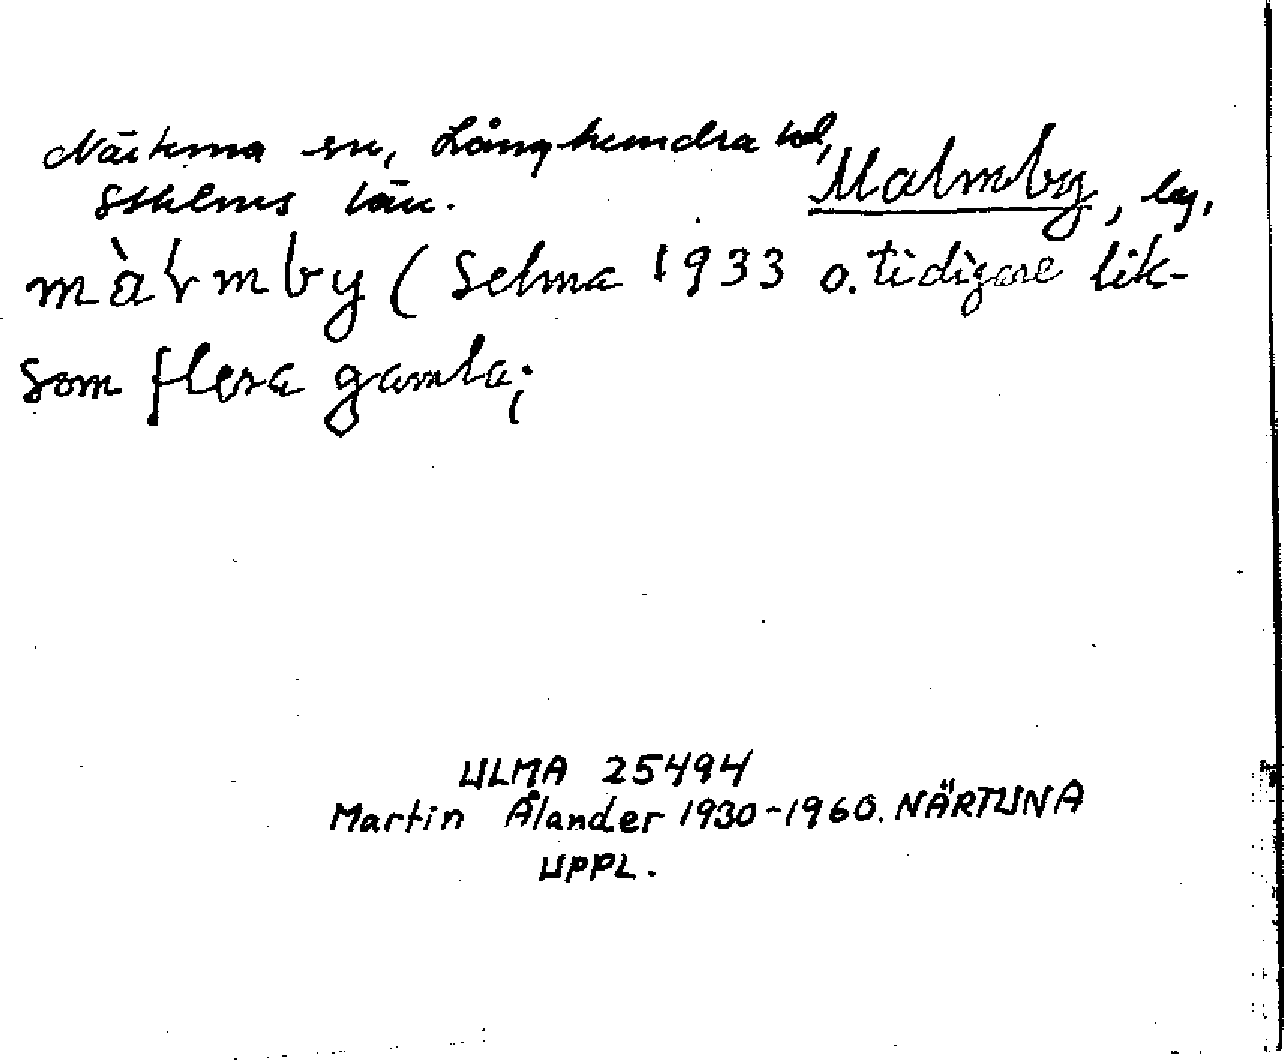 Närtuna sn, Långhundra hd,
Sthlms län.
Malmby, by,
màɫmby (Selma 1933 o. tidigare lik-
som flera gamla;
ULMA 25494
Martin Ålander 1930-1960. NÄRTUNA
UPPL.